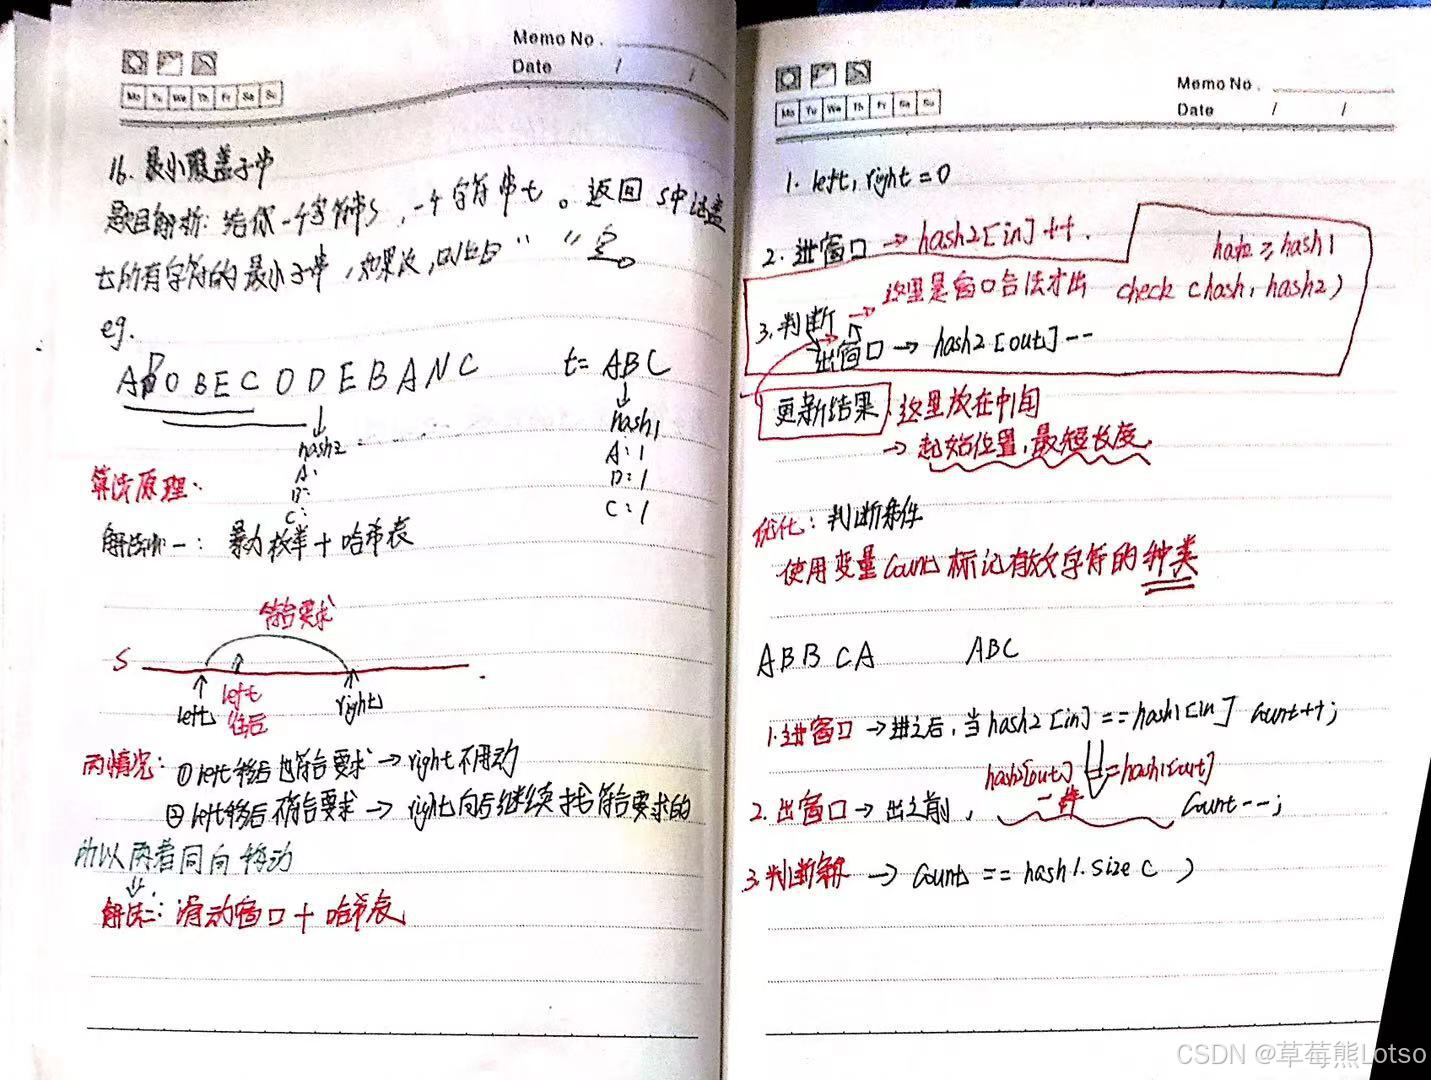 Memo No.
Date / /
Mo Tu We Th Fr Sa Su
16. 最小覆盖子串
题目解析: 给你一个字符串s, 一个字符串t。返回 s中涵盖
t所有字符的最小子串, 如果没, 则返回 " " 空。
eg.
ADOBECODEBANC t= ABC
hash2 hash1
A: A:1
B: B:1
C: C:1
算法原理:
解法一: 暴力枚举 + 哈希表
符合要求
S
left left right
往后
两情况: ① left移后也符合要求 → right不用动
② left移后不符合要求 → right向后继续找符合要求的
所以两者同向移动
解法二: 滑动窗口 + 哈希表
Memo No.
Date / /
Mo Tu We Th Fr Sa Su
1. left, right = 0
2. 进窗口 → hash2[in]++.
hash2 ≥ hash1
3. 判断 → 这里是窗口合法才出 check (hash1, hash2)
出窗口 → hash2[out]--
更新结果 : 这里放在中间
→ 起始位置, 最短长度
优化: 判断条件
使用变量count标记有效字符的种类
ABBCA ABC
1. 进窗口 → 进之后, 当hash2[in]==hash1[in] count++;
hash2[out]==hash1[out]
2. 出窗口 → 出之前, 一样 count--;
3. 判断条件 → count == hash1.size()
CSDN @草莓熊Lotso